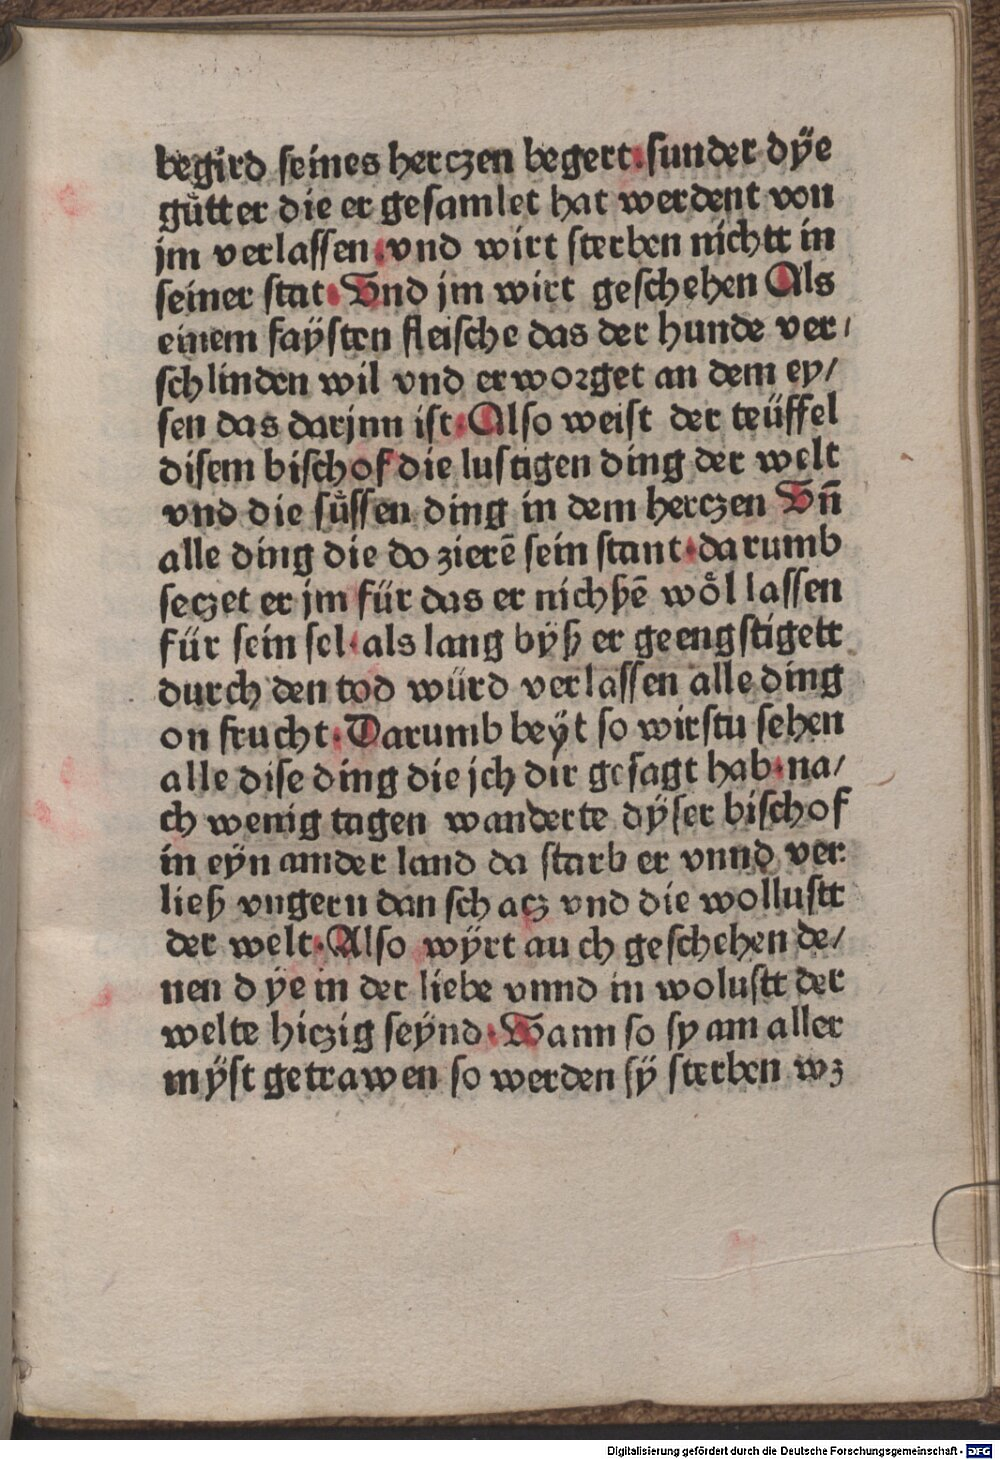 begird seines herczen begert·sunder dÿe
guͤtter die er gesamlet hat werdent von
jm verlassen·vnd wirt sterben nichtt in
seiner stat·Vnd jm wirt geschehen Als
einem faÿsten fleische das der hunde ver/
schlinden wil vnd er worget an dem ey/
sen das darjnn ist·Also weist der teüffel
disem bischof die lustigen ding der welt
vnd die suͤssen ding in dem herczen Vn̄
alle ding die do zierē sein stant·darumb
seczet er jm für das er nichßē woͤl lassen
für sein sel·als lang byß er geengstigett
durch den tod würd verlassen alle ding
on frucht·Darumb beÿt so wirstu sehen
alle dise ding die jch dir gesagt hab·na/
ch wenig tagen wanderte dÿser bischof
in eyn amder land da starb er vnnd ver
ließ vngern dan schacz vnd die wollustt
der welt·Also wÿrt auch geschehen de/
nen dÿe in der liebe vnnd in wolustt der
welte hiczig seÿnd·Wann so sy am aller
mÿst getrawen so werden sÿ sterben wz
Digitalisierung gefördert durch die Deutsche Forschungsgemeinschaft - DFG